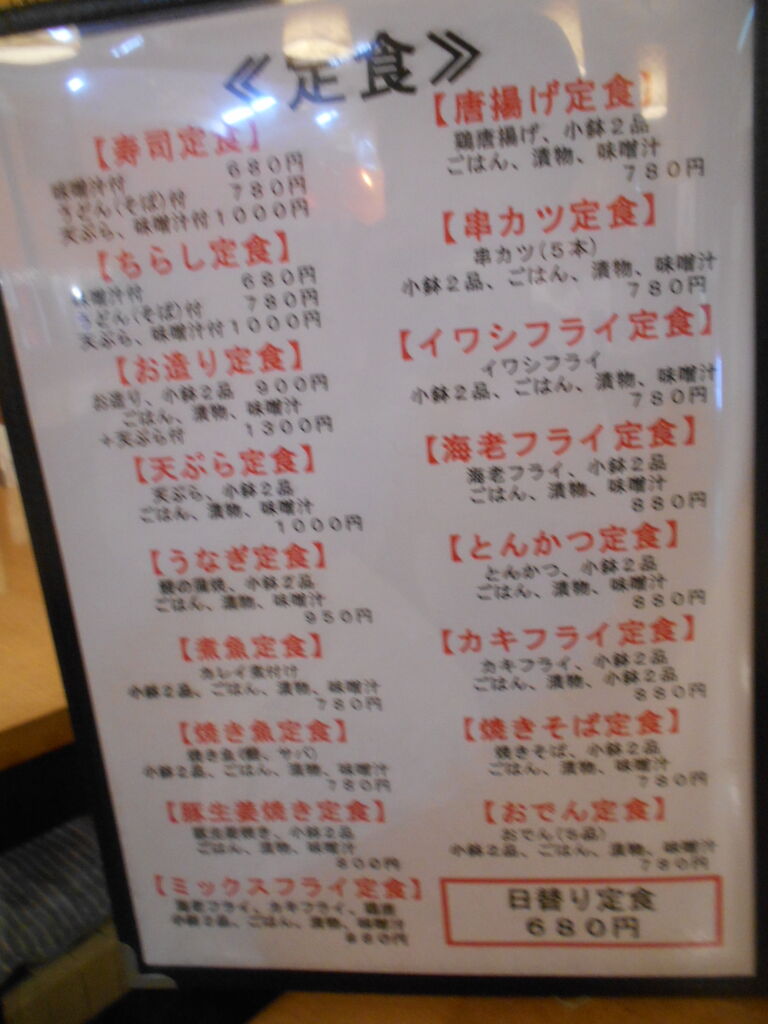 ≪定食≫
【寿司定食】
味噌汁付 680円
うどん(そば)付 780円
天ぷら、味噌汁付1000円
【ちらし定食】
味噌汁付 680円
うどん(そば)付 780円
天ぷら、味噌汁付1000円
【お造り定食】
お造り、小鉢2品 900円
ごはん、漬物、味噌汁
+天ぷら付 1300円
【天ぷら定食】
天ぷら、小鉢2品
ごはん、漬物、味噌汁
1000円
【うなぎ定食】
鰻の蒲焼、小鉢2品
ごはん、漬物、味噌汁
950円
【煮魚定食】
カレイ煮付け
小鉢2品、ごはん、漬物、味噌汁
780円
【焼き魚定食】
焼き魚(、サバ)
小鉢2品、ごはん、漬物、味噌汁
780円
【豚生姜焼き定食】
豚生姜焼き、小鉢2品
ごはん、漬物、味噌汁
800円
【ミックスフライ定食】
海老フライ、カキフライ、
小鉢2品、ごはん、漬物、味噌汁
880円
【唐揚げ定食】
鶏唐揚げ、小鉢2品
ごはん、漬物、味噌汁
780円
【串カツ定食】
串カツ(5本)
小鉢2品、ごはん、漬物、味噌汁
780円
【イワシフライ定食】
イワシフライ
小鉢2品、ごはん、漬物、味噌汁
780円
【海老フライ定食】
海老フライ、小鉢2品
ごはん、漬物、味噌汁
880円
【とんかつ定食】
とんかつ、小鉢2品
ごはん、漬物、味噌汁
880円
【カキフライ定食】
カキフライ、小鉢2品
ごはん、漬物、小鉢2品
880円
【焼きそば定食】
焼きそば、小鉢2品
ごはん、漬物、味噌汁
780円
【おでん定食】
おでん(5品)
小鉢2品、ごはん、漬物、味噌汁
780円
日替り定食
680円